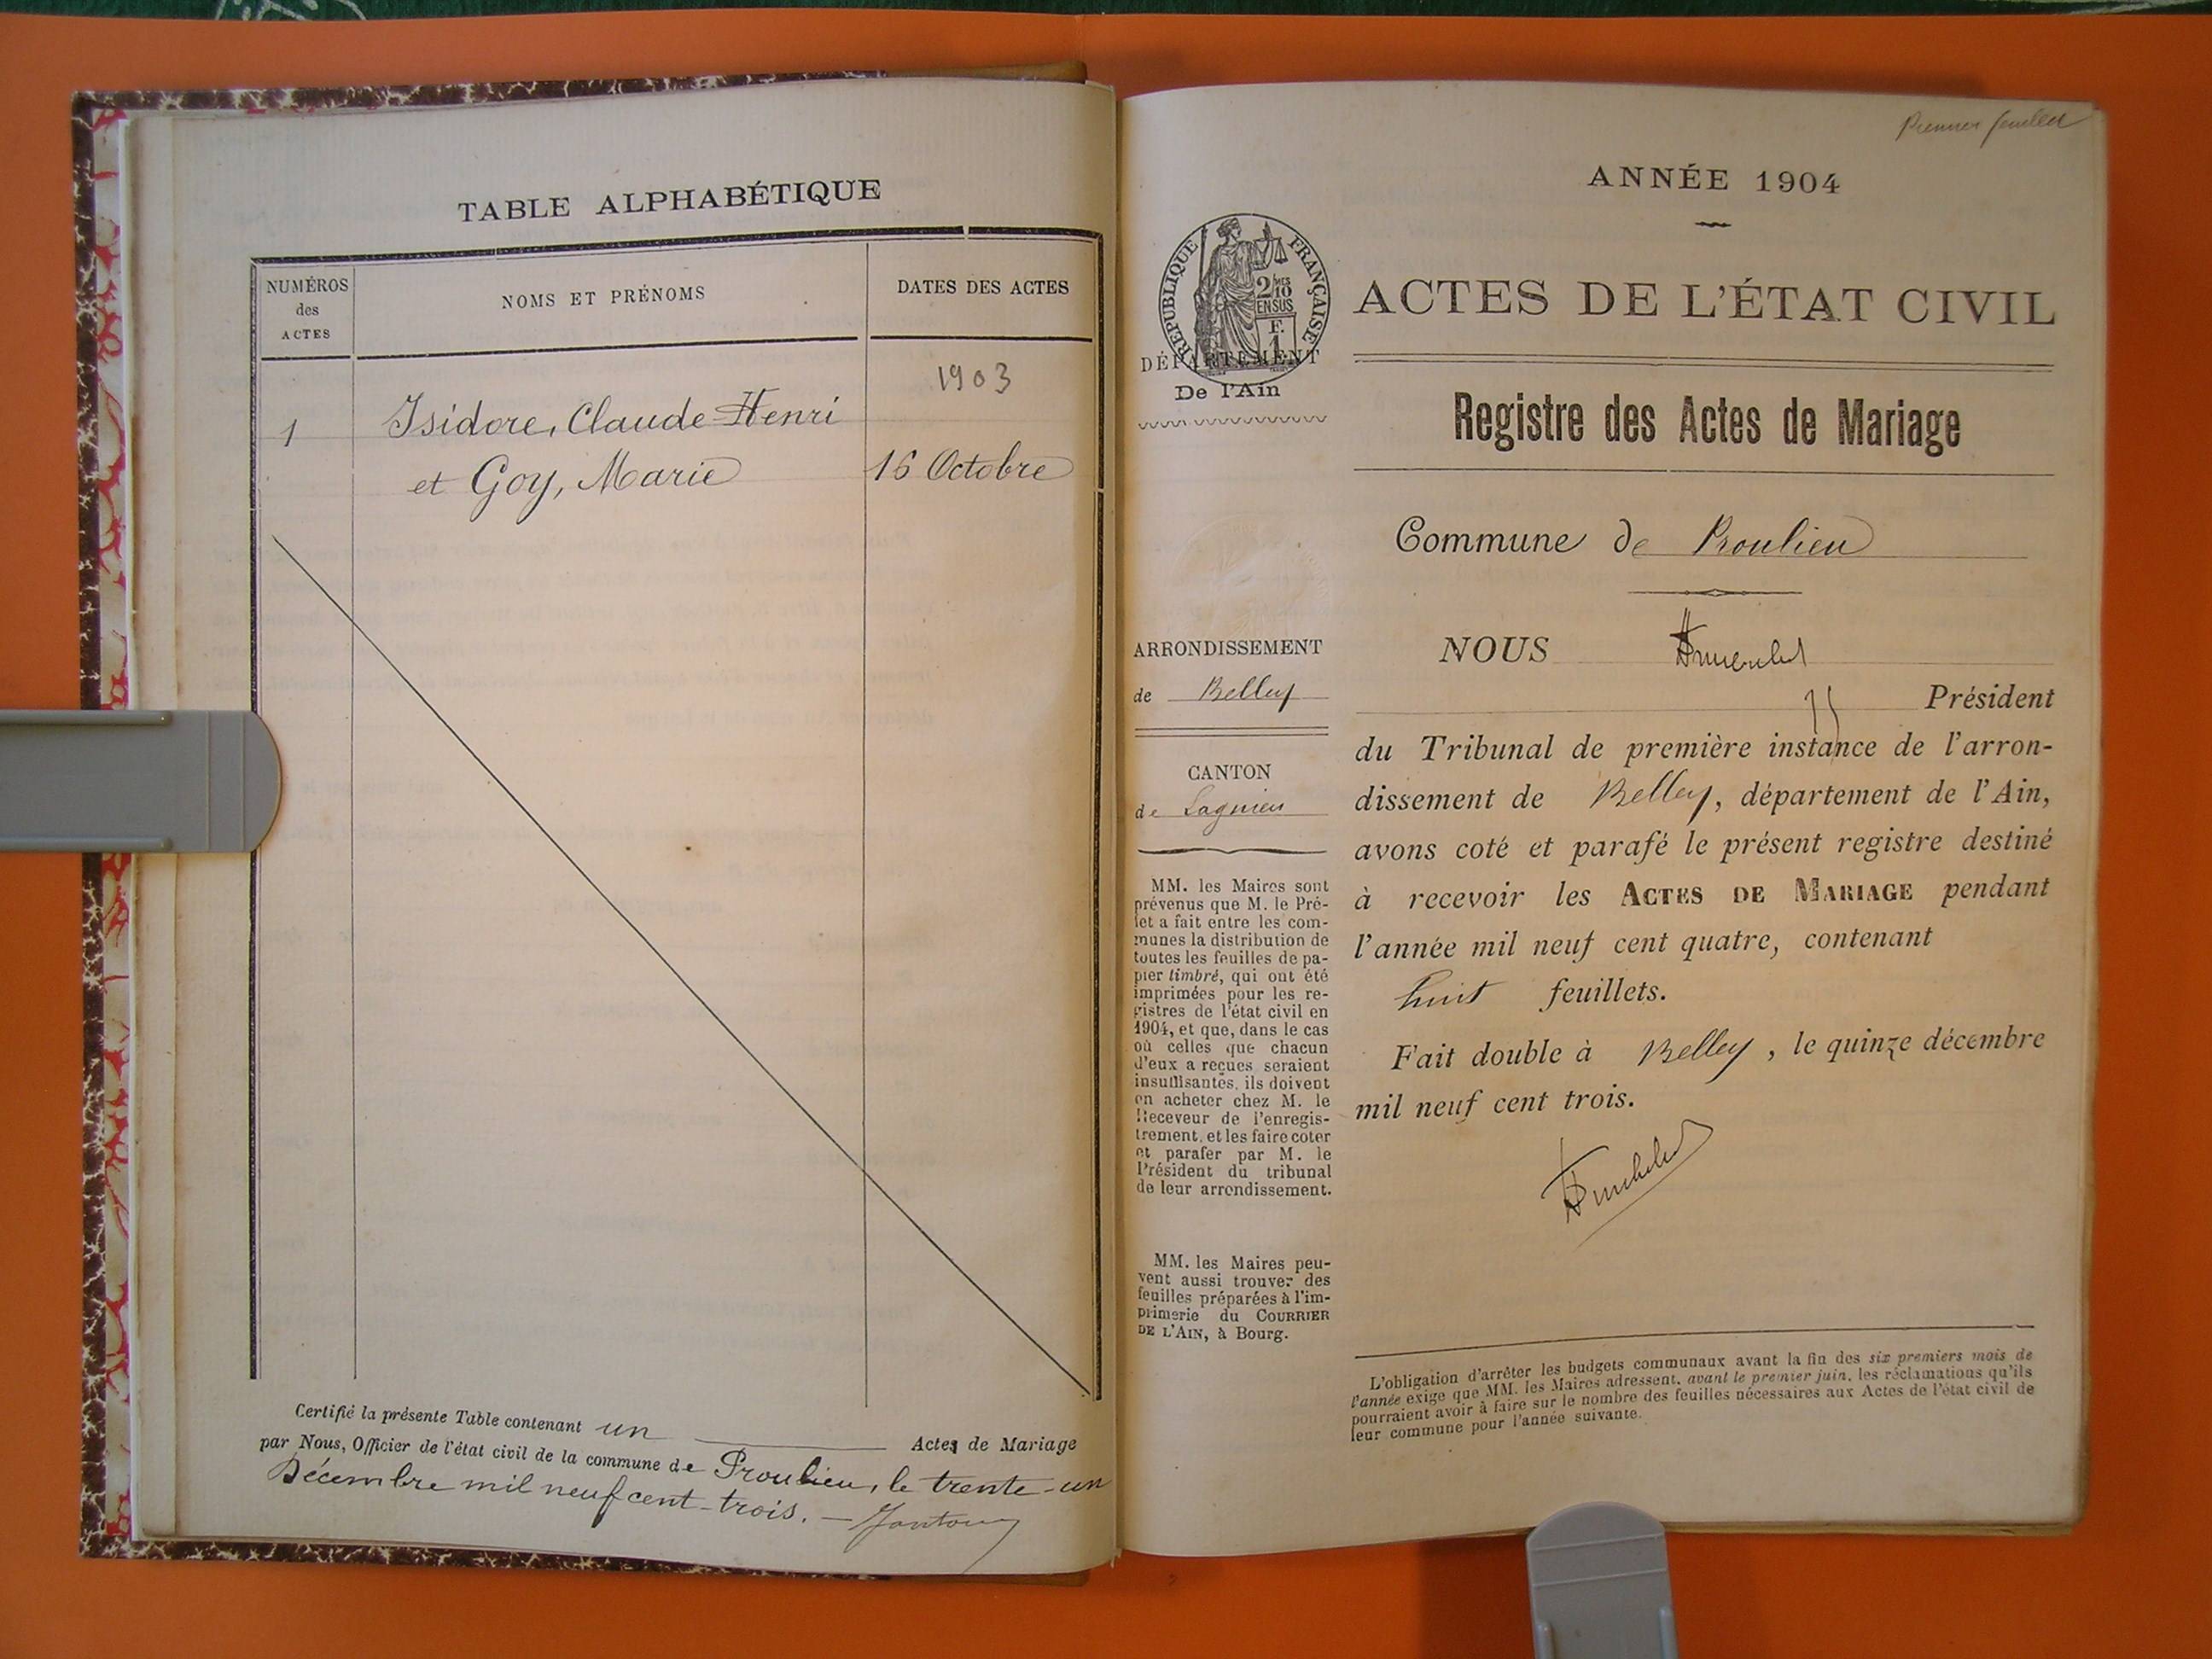 TABLE ALPHABÉTIQUE
NUMÉROS
des
ACTES
NOMS ET PRÉNOMS
DATES DES ACTES
1903
1
Isidore, Claude-Henri
et Goy, Marie
16 Octobre
Certifié la présente Table contenant un Actes de Mariage
par Nous, Officier de l'état civil de la commune de Proulieu, le trente-un
Décembre mil neuf cent-trois. —
Premier feuillet
ANNÉE 1904
RÉPUBLIQUE FRANÇAISE
2/10 EN SUS
F.
1
DÉPARTEMENT
De l'Ain
ACTES DE L'ÉTAT CIVIL
Registre des Actes de Mariage
Commune de Proulieu
ARRONDISSEMENT
de Belley
CANTON
de Lagnieu
MM. les Maires sont
prévenus que M. le Pré-
fet a fait entre les com-
munes la distribution de
toutes les feuilles de pa-
pier timbré, qui ont été
imprimées pour les re-
gistres de l'état civil en
1904, et que, dans le cas
où celles que chacun
d'eux a reçues seraient
insuffisantes, ils doivent
en acheter chez M. le
Receveur de l'enregis-
trement, et les faire coter
et parafer par M. le
Président du tribunal
de leur arrondissement.
MM. les Maires peu-
vent aussi trouver des
feuilles préparées à l'im-
primerie du COURRIER
DE L'AIN, à Bourg.
NOUS
Président
du Tribunal de première instance de l'arron-
dissement de Belley, département de l'Ain,
avons coté et parafé le présent registre destiné
à recevoir les ACTES DE MARIAGE pendant
l'année mil neuf cent quatre, contenant
huit feuillets.
Fait double à Belley, le quinze décembre
mil neuf cent trois.
L'obligation d'arrêter les budgets communaux avant la fin des six premiers mois de
l'année exige que MM. les Maires adressent, avant le premier juin, les réclamations qu'ils
pourraient avoir à faire sur le nombre des feuilles nécessaires aux Actes de l'état civil de
leur commune pour l'année suivante.